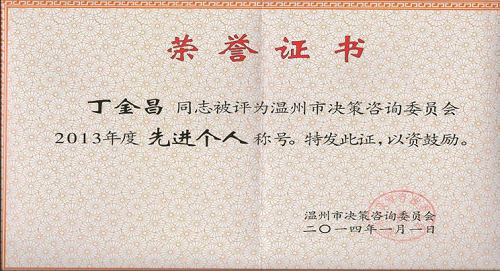 荣誉证书
丁金昌 同志被评为温州市决策咨询委员会
2013年度 先进个人 称号。特发此证,以资鼓励。
温州市决策咨询委员会
二〇一四年一月一日